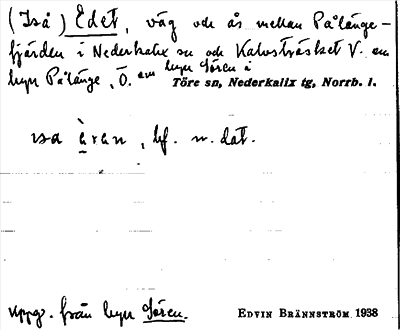 (Iså) Edet, väg och ås mellan Pålänge-
fjärden i Nederkalix sn och Kalvsträsket V. om
byn Pålänge, Ö. om byn Sören i
Töre sn, Nederkalix tg, Norrb. l.
ɩsa àran, bf. n. dat.
Uppg. från byn Sören.
EDVIN BRÄNNSTRÖM 1938